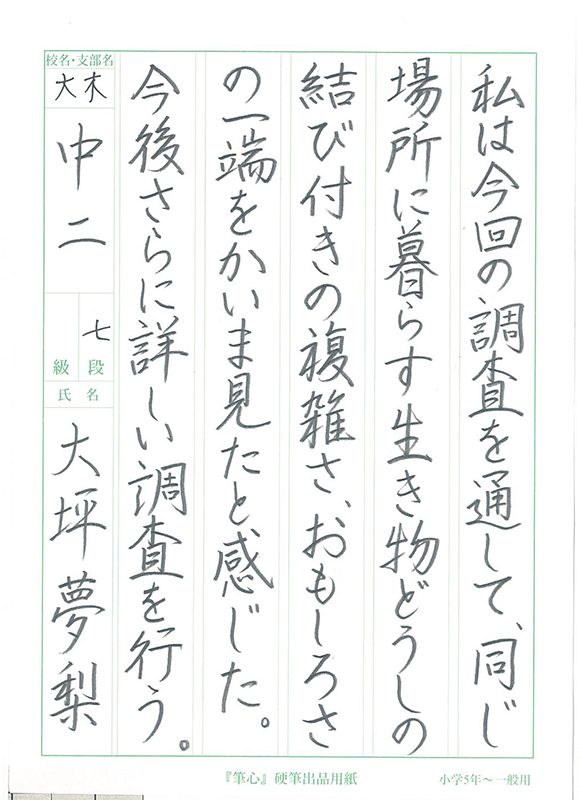 私は今回の調査を通して、同じ
場所に暮らす生き物どうしの
結び付きの複雑さ、おもしろさ
の一端をかいま見たと感じた。
今後さらに詳しい調査を行う。
校名・支部名
大木
中二
七
段
級
氏名
大坪夢梨
『筆心』硬筆出品用紙
小学5年〜一般用